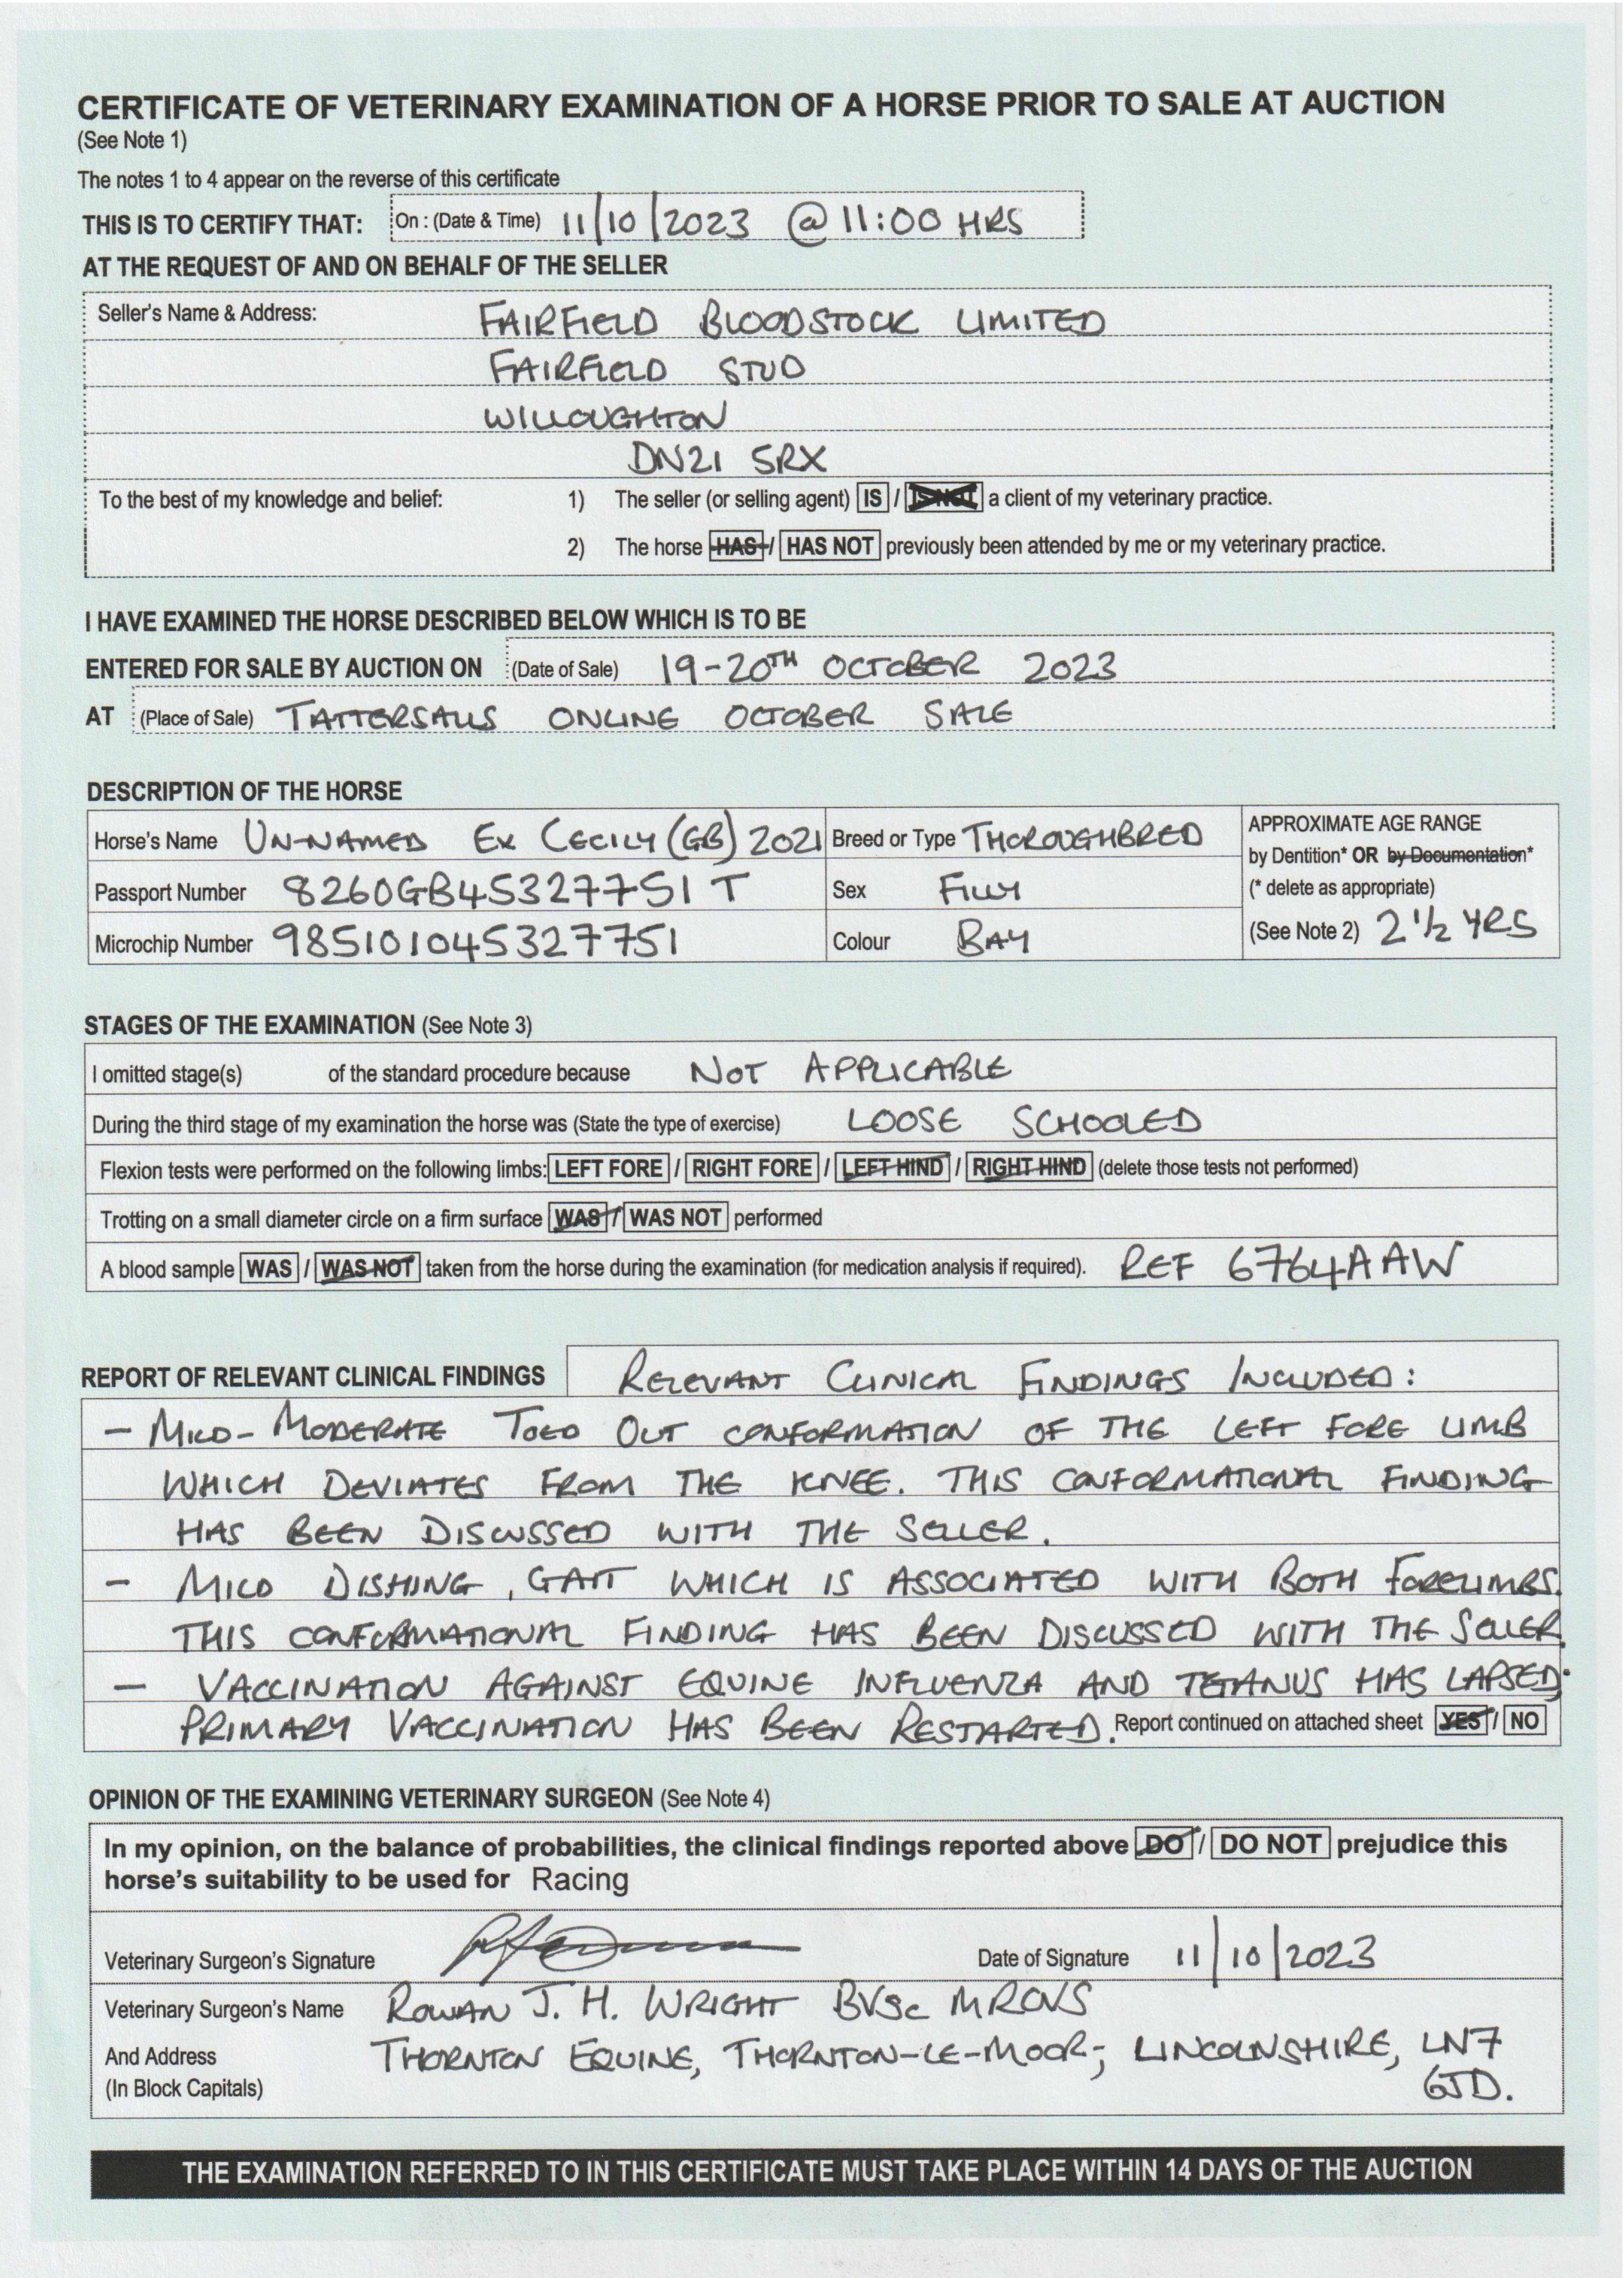 CERTIFICATE OF VETERINARY EXAMINATION OF A HORSE PRIOR TO SALE AT AUCTION
(See Note 1)
The notes 1 to 4 appear on the reverse of this certificate
THIS IS TO CERTIFY THAT: On : (Date & Time) 11/10/2023 @ 11:00 HRS
AT THE REQUEST OF AND ON BEHALF OF THE SELLER
Seller's Name & Address: FAIRFIELD BLOODSTOCK LIMITED
FAIRFIELD STUD
WILLOUGHTON
DN21 5RX
To the best of my knowledge and belief: 1) The seller (or selling agent) IS / IS NOT a client of my veterinary practice.
2) The horse HAS / HAS NOT previously been attended by me or my veterinary practice.
I HAVE EXAMINED THE HORSE DESCRIBED BELOW WHICH IS TO BE
ENTERED FOR SALE BY AUCTION ON (Date of Sale) 19-20TH OCTOBER 2023
AT (Place of Sale) TATTERSALLS ONLINE OCTOBER SALE
DESCRIPTION OF THE HORSE
Horse's Name UN-NAMED EX CECILY (GB) 2021 Breed or Type THOROUGHBRED
Passport Number 8260GB45327751T Sex FILLY
Microchip Number 985101045327751 Colour BAY
APPROXIMATE AGE RANGE
by Dentition* OR by Documentation*
(* delete as appropriate)
(See Note 2) 2 1/2 YRS
STAGES OF THE EXAMINATION (See Note 3)
I omitted stage(s) of the standard procedure because NOT APPLICABLE
During the third stage of my examination the horse was (State the type of exercise) LOOSE SCHOOLED
Flexion tests were performed on the following limbs: LEFT FORE / RIGHT FORE / LEFT HIND / RIGHT HIND (delete those tests not performed)
Trotting on a small diameter circle on a firm surface WAS / WAS NOT performed
A blood sample WAS / WAS NOT taken from the horse during the examination (for medication analysis if required). REF 6764AAW
REPORT OF RELEVANT CLINICAL FINDINGS RELEVANT CLINICAL FINDINGS INCLUDED:
- MILD-MODERATE TOED OUT CONFORMATION OF THE LEFT FORE LIMB
WHICH DEVIATES FROM THE KNEE. THIS CONFORMATIONAL FINDING
HAS BEEN DISCUSSED WITH THE SELLER.
- MILD DISHING, GAIT WHICH IS ASSOCIATED WITH BOTH FORELIMBS.
THIS CONFORMATIONAL FINDING HAS BEEN DISCUSSED WITH THE SELLER.
- VACCINATION AGAINST EQUINE INFLUENZA AND TETANUS HAS LAPSED;
PRIMARY VACCINATION HAS BEEN RESTARTED. Report continued on attached sheet YES / NO
OPINION OF THE EXAMINING VETERINARY SURGEON (See Note 4)
In my opinion, on the balance of probabilities, the clinical findings reported above DO / DO NOT prejudice this
horse's suitability to be used for Racing
Veterinary Surgeon's Signature Date of Signature 11/10/2023
Veterinary Surgeon's Name ROWAN J. H. WRIGHT BVSc MRCVS
And Address THORNTON EQUINE, THORNTON-LE-MOOR, LINCOLNSHIRE, LN7
(In Block Capitals) 6JD.
THE EXAMINATION REFERRED TO IN THIS CERTIFICATE MUST TAKE PLACE WITHIN 14 DAYS OF THE AUCTION